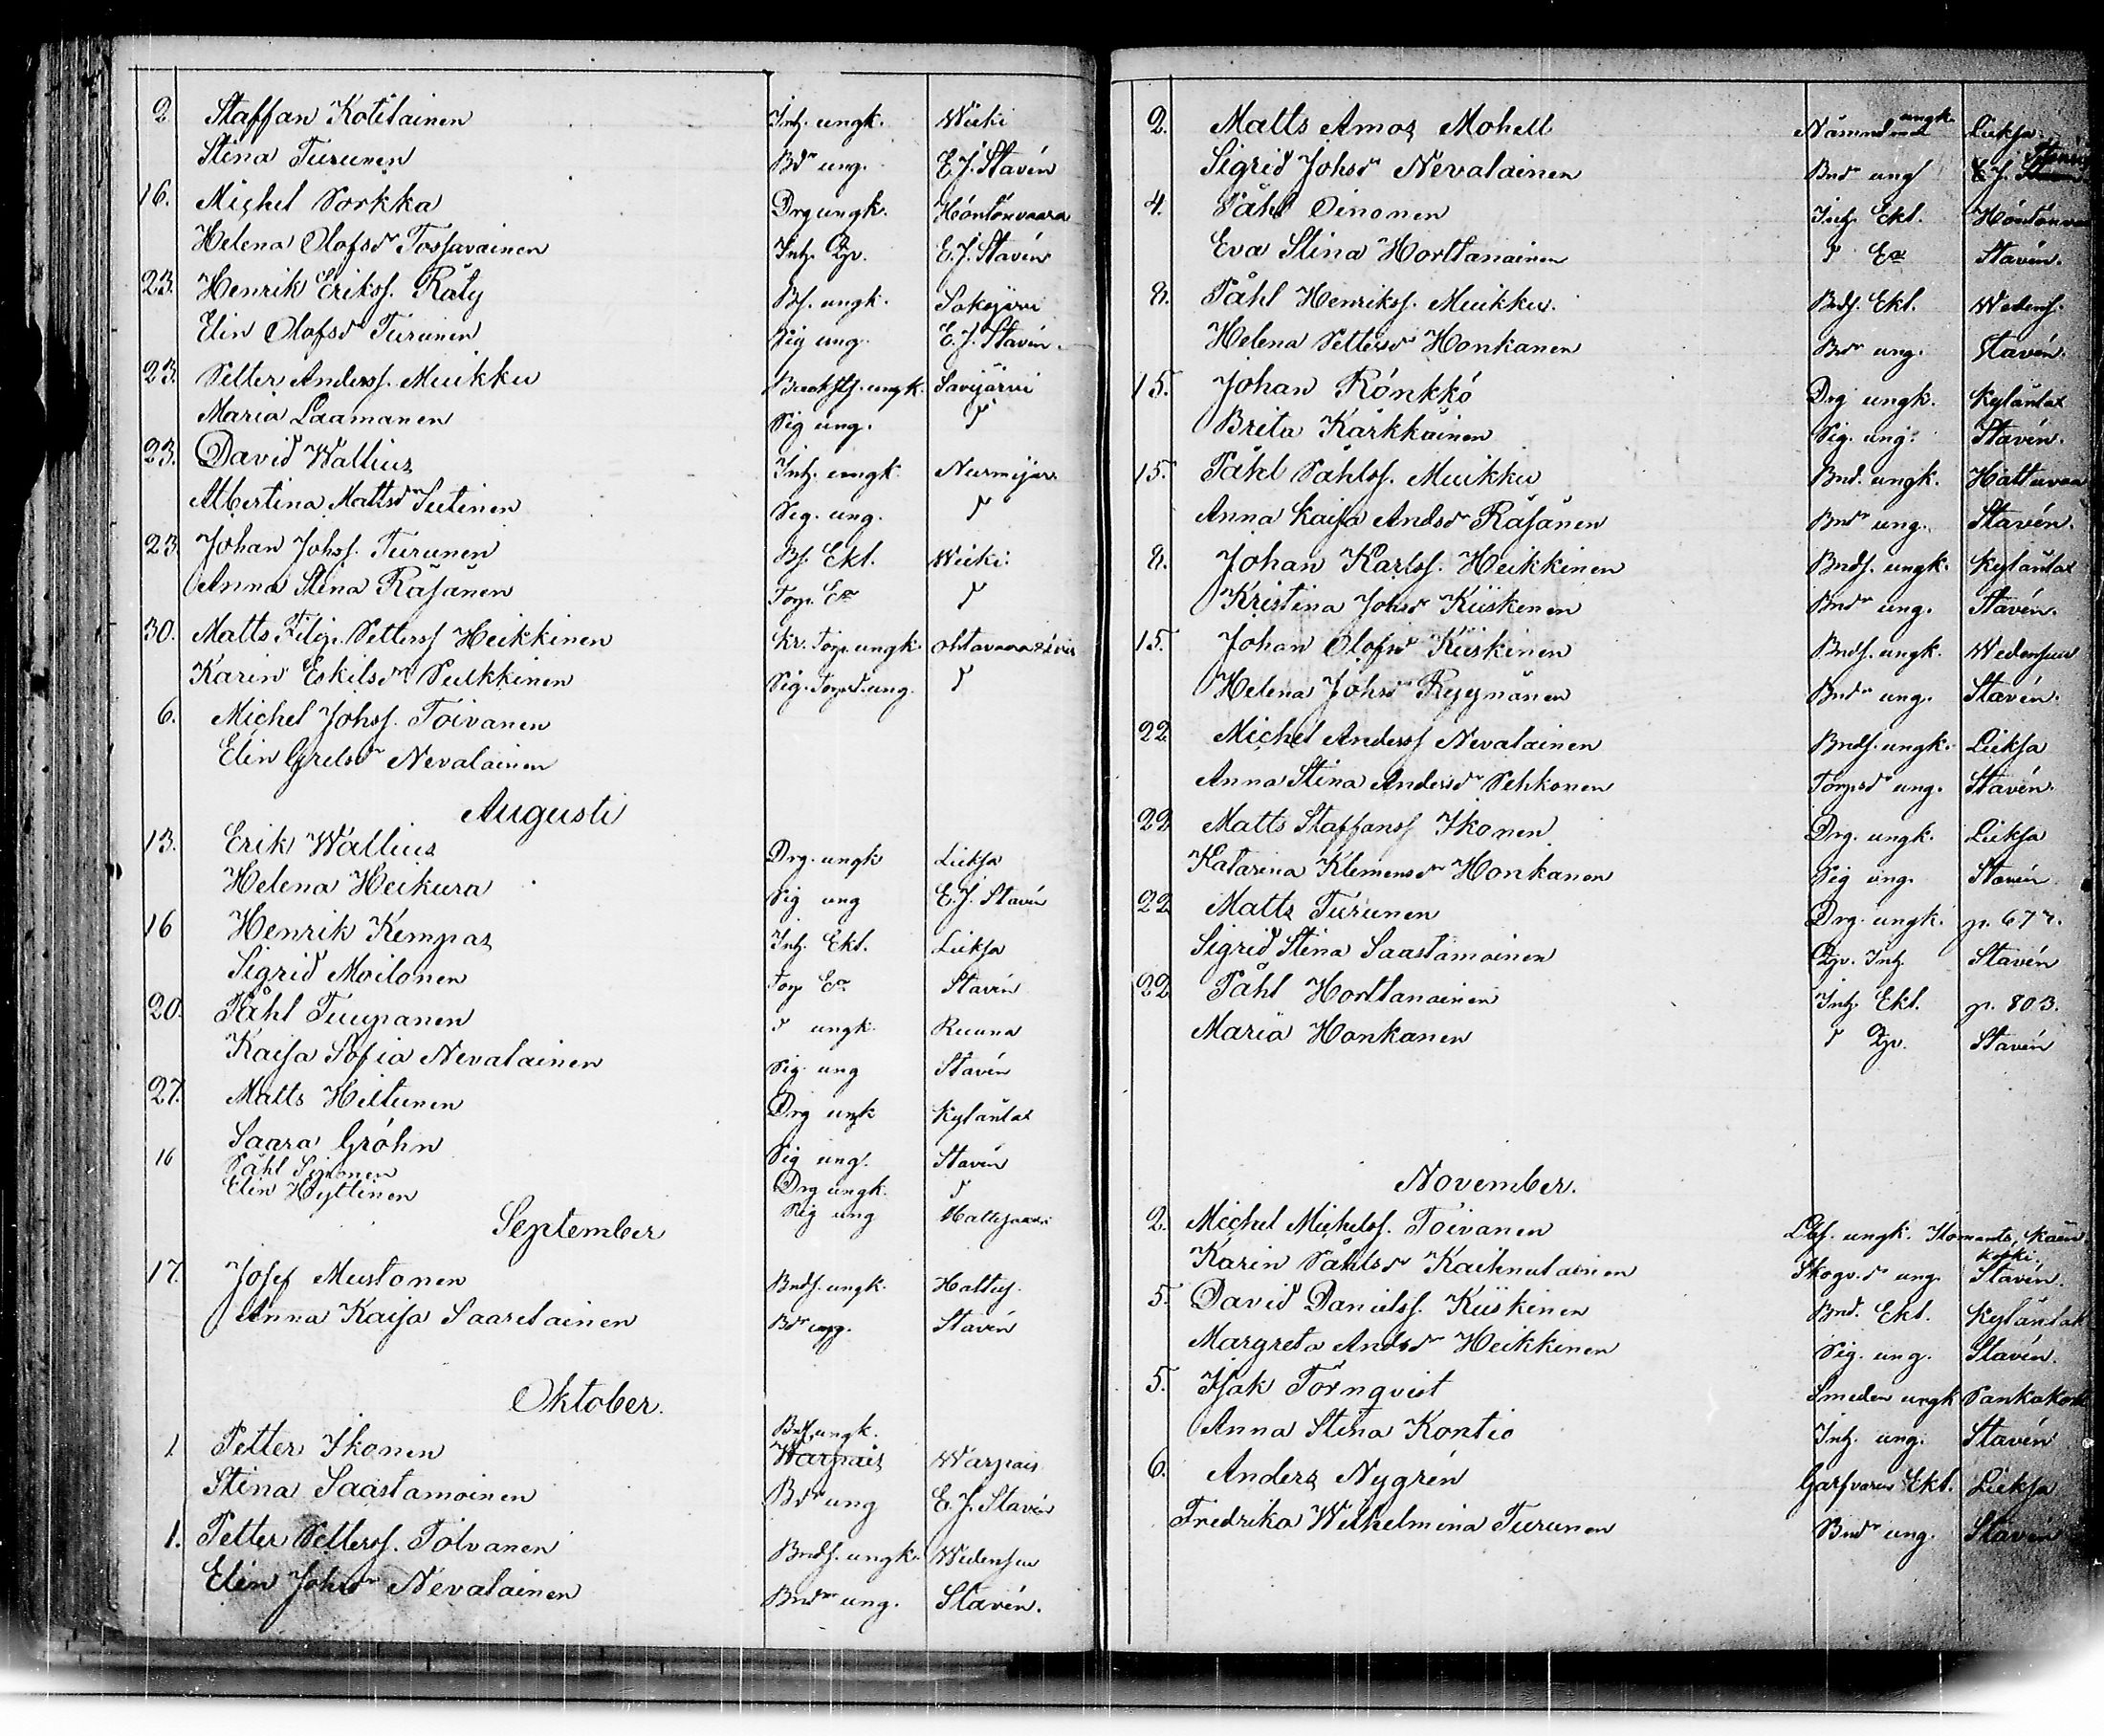 2 Staffan Kotilainen Inh. ungk. Wieki
Stina Turunen Bdr ung. E. J. Stavén
16. Michel Sorkka Drg ungk. Höntönvaara
Helena Olofsdr Tossavainen Inh. Qv. E. J. Stavén
23. Henrik Erikss. Räty Bs. ungk. Sokojärvi
Elin Olofsdr Turunen Pig ung. E. J. Stavén.
23. Petter Anderss. Muikku ungk. Savijärvi
Maria Laamanen Pig ung. d
23. David Wallius Inh. ungk. Nurmijär.
Albertina Mattsdr Sutinen Pig. ung. d
23. Johan Johss. Turunen Bs. Ekl. Wieki
Anna Stina Räsänen Torp. Ea d
30. Matts Filip Petterss Heikkinen Kr. Torp. ungk.
Karin Eskilsdr Pulkkinen Pig. Torpd. ung. d
6. Michel Johss. Toivanen
Elin Grelsdr Nevalainen
Augusti
13. Erik Wallius Drg. ungk Lieksa
Helena Heikura Pig ung E. J. Stavén
16 Henrik Kempas Inh. Ekl. Lieksa
Sigrid Moilanen Torp Ea Stavén
20. Påhl Tuupanen d ungk. Ruuna
Kaisa Sofia Nevalainen Pig. ung Stavén
27. Matts Hiltunen Drg ungk Kylänlax
Saara Gröhn Pig ung. Stavén
16 Påhl Sijvonen Drg ungk. d
Elin Hyttinen Pig ung
September
17. Josef Mustonen Bnds. ungk. Hattuv.
Anna Kaisa Saarelainen Bdr ung. Stavén
Oktober.
Bds. ungk.
1 Petter Ikonen Warpais Warpais
Stina Saastamoinen Bdr ung E. J. Stavén
1. Petter Petterss. Tolvanen Bnds. ungk. Wiedensuu
Elin Johsdr Nevalainen Bndr ung. Stavén.
ungk.
2. Matts Amos Mohell Nämndemd Lieksa
Sigrid Johsdr Nevalainen Bndr ung E. J.
4. Påhl Oinonen Inh. Ekl. Höntönva
Eva Stina Horttanainen d Ea Stavén.
8. Påhl Henrikss. Muikku. Bnds. Ekl. Wedens.
Helena Pettersdr Honkanen Bndr ung. Stavén.
15. Johan Rönkkö Drg ungk. Kylänlax
Brita Kärkkäinen Pig. ung. Stavén.
15. Påhl Påhlss. Muikku Bnd. ungk. Hattuvaa
Anna Kaisa Andsdr Räsänen Bndr ung. Stavén.
8. Johan Karlss. Heikkinen Bnds. ungk. Kylänlax
Kristina Johsdr Kiiskinen Bndr ung. Stavén.
15. Johan Olofsd Kiiskinen Bnds. ungk. Wedensuu
Helena Johsdr Ryynänen Bndr ung. Stavén.
22 Michel Anderss Nevalainen Bnds. ungk. Lieksa
Anna Stina Andersdr Pehkonen Torpsdr ung. Stavén.
22 Matts Staffanss Ikonen Drg. ungk. Lieksa
Katarina Klemensdr Honkanen Pig ung. Stavén
22 Matts Turunen Drg. ungk. p. 677.
Sigrid Stina Saastamoinen Qv. Inh Stavén
22 Påhl Horttanainen Inh. Ekl. p. 803.
Maria Honkanen d Qv. Stavén
November.
2. Michel Michelss. Toivanen ungk. Ilomants,
Karin Påhlsdr Kaihnulainen Skogv.dr ung. Stavén.
5. David Danielss. Kiiskinen Bnd. Ekl. Kylänlah
Margreta Andsdr Heikkinen Pig. ung. Stavén.
5. Isak Törnqvist Smeden ungk Pankakosk
Anna Stina Kontio Inh. ung. Stavén
6. Anders Nygrén Garfvaren Ekl. Lieksa
Fredrika Wilhelmina Turunen Bndr ung. Stavén